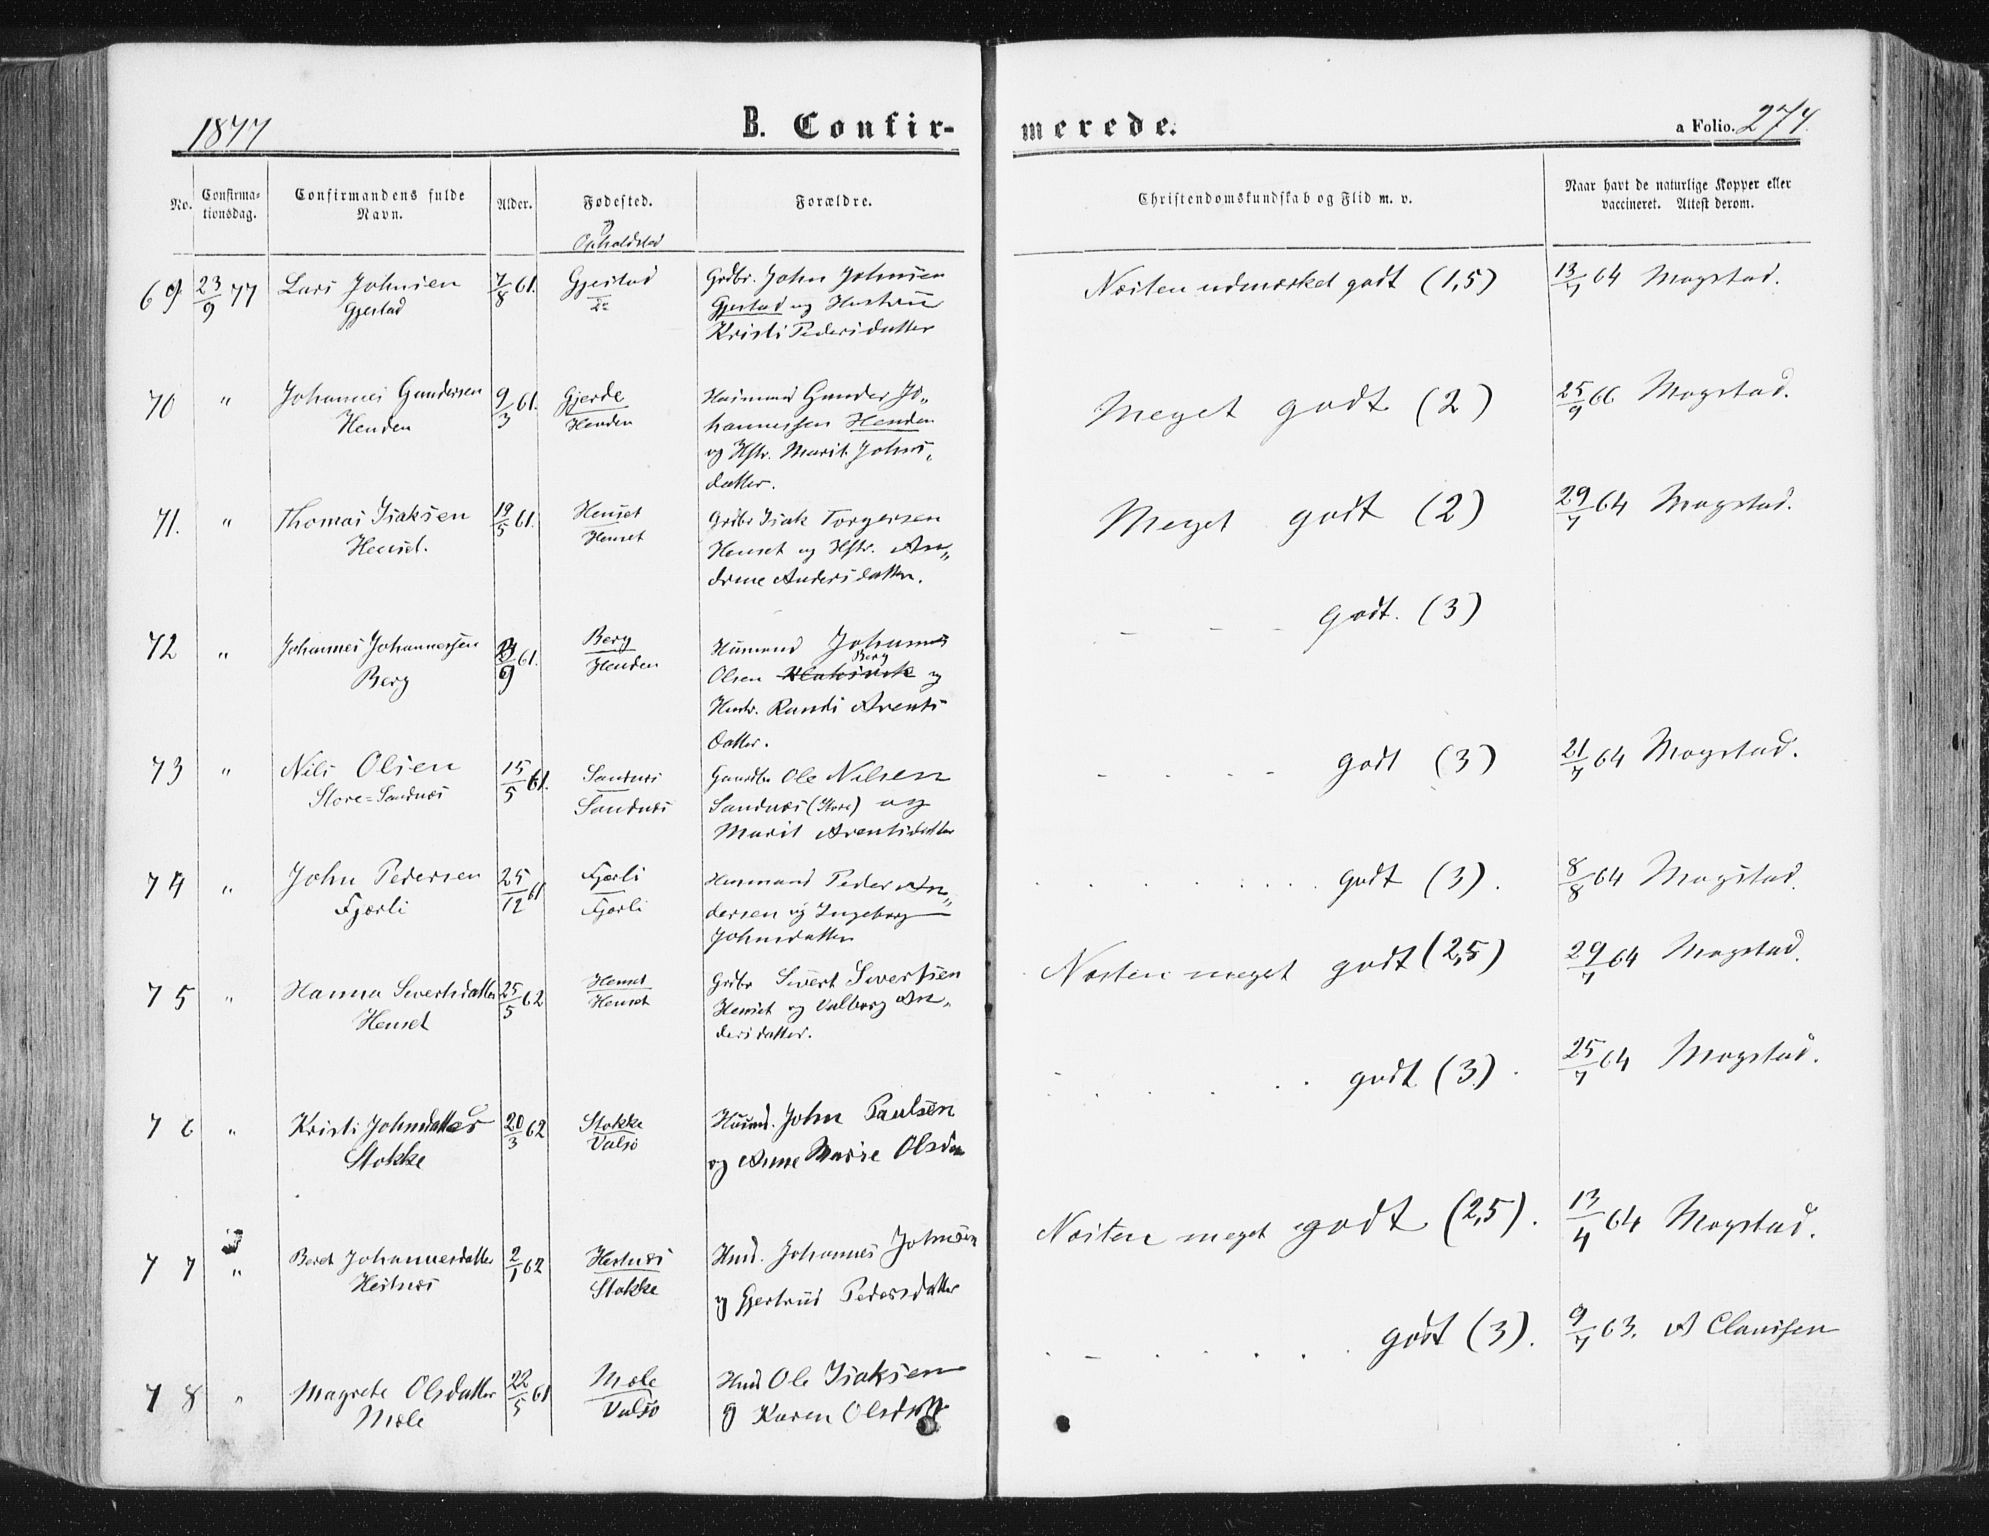 1877
B. Confir-
merede.
a Folio. 274.
No.
Confirma-
tionsdag.
Confirmandens fulde
Navn.
Alder.
Fødested.
og
Opholdsted
Forældre.
Christendomskundskab og Flid m. v.
Naar havt de naturlige Kopper eller
vaccineret. Attest derom.
69 23/9 77 Lars Johnsen 7/8 61. Gjestad Grdbr. John Johnsen Næsten udmærket godt (1,5) 13/7 64 Mogstad.
Gjestad do Gjestad og Hustru
Kristi Pedersdatter
70 " Johannes Gundersen 9/3 61. Gjerde Husmand Gunder Jo„ Meget godt (2) 25/9 66 Mogstad.
Henden Henden hannessen Henden
og Hstr. Marit Johns„
datter.
71. " Thomas Isaksen 19/5 61. Henset Grdbr Isak Torgersen Meget godt (2) 29/7 64 Mogstad.
Henset. Henset Henset og Hstr. An„
drine Andersdatter.
72 " Johannes Johannessen /9 61. Berg Husmand Johannes - - - godt. (3)
Berg Henden Olsen Berg og
Hustr. Randi Arents
datter.
73 " Nils Olsen 15/5 61. Sandnes Gaardbr Ole Nilsen - - - - godt (3) 21/7 64 Mogstad.
Store=Sandnæs Sandnæs Sandnæs (Store) og
Marit Arentsdatter
74 " John Pedersen 25/12 61 Fjørli Husmand Peder An„ . . . . . . . . godt (3). 8/8 64 Mogstad.
Fjørli Fjørli dersen og Ingeborg
Johnsdatter
75 " Hanna Sivertsdatter 25/5 62 Henset Grdbr Sivert Sivertsen Næsten meget godt (2,5) 29/7 64 Mogstad.
Henset Henset Henset og Valborg An„
dersdatter.
76 " Kristi Johnsdatter 20/3 62 Stokke Husmd. John Paulsen . . . . . . godt (3). 25/7 64 Mogstad.
Stokke Valsø og Anne Marie Olsdr
77 " Beret Johannesdatter 2/1 62 Hestnæs Husd. Johannes Johnsen Næsten meget godt (2,5). 13/4 64 Mogstad.
Hestnæs Stokke og Gjertrud Pedersdatter
78 " Magrete Olsdatter 22/5 61 Mæle Husd Ole Isaksen . - . . . . . godt (3). 9/7 63. A Claussen
Mæle Valsø og Karen Olsdatt